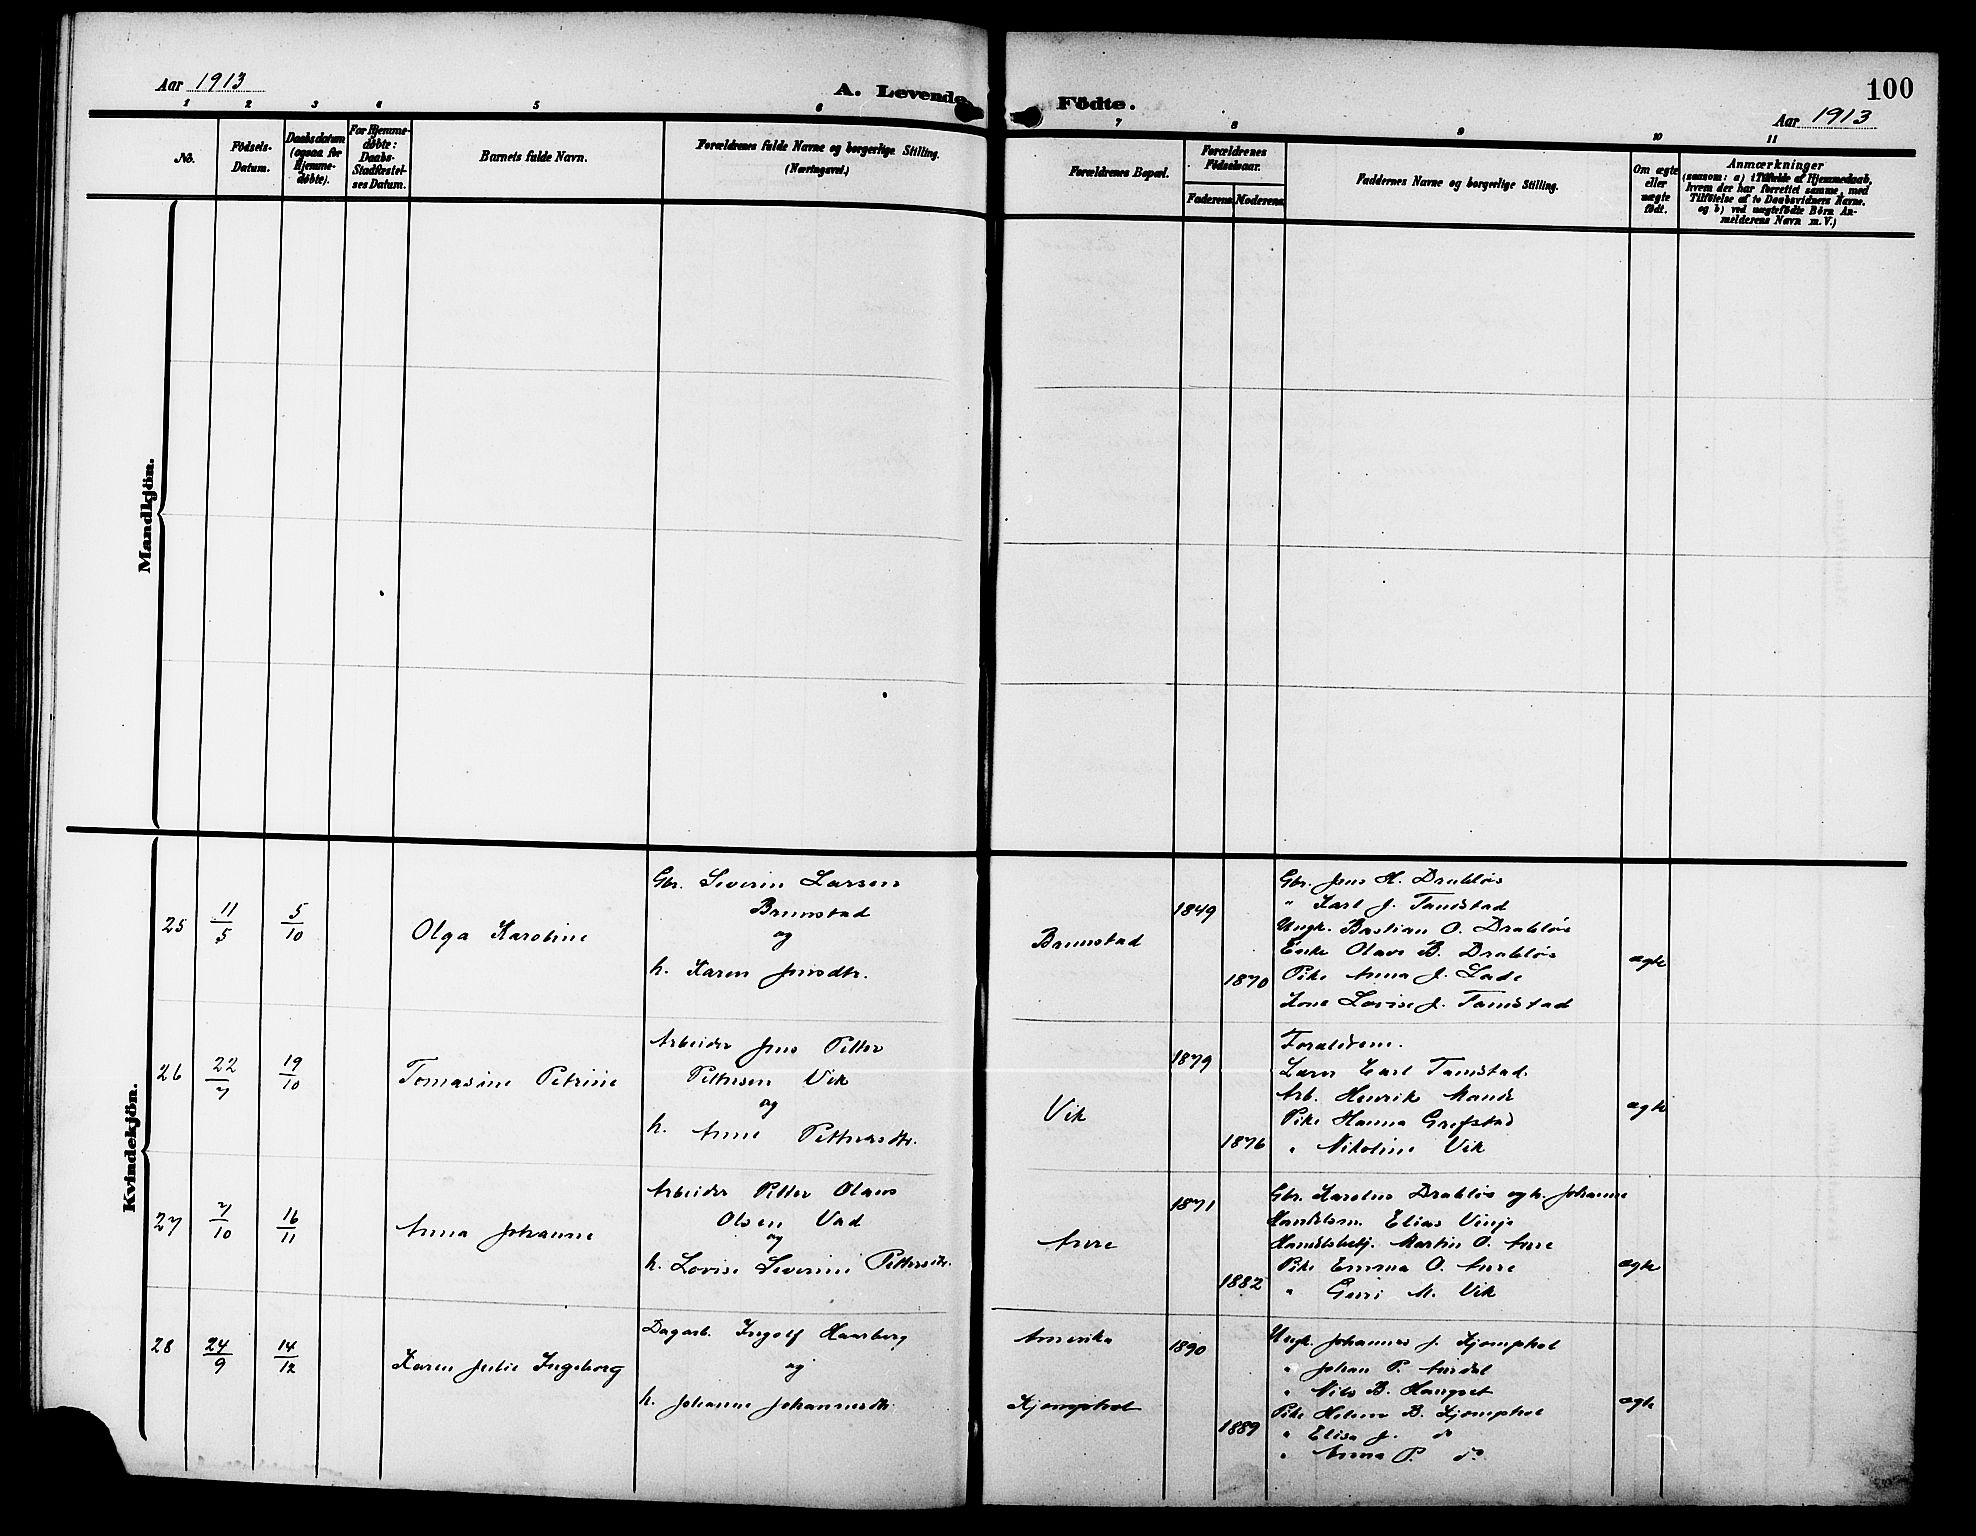 Aar 1913
A. Levende
Födte.
100
Aar 1913
1 2 3 4 5 6 7 8 9 10 11
No.
Födsels-
Datum.
Daabsdatum
(ogsaa for
Hjemme-
döbte).
For Hjemme-
döbte:
Daabs-
Stadfæstel-
ses Datum.
Barnets fulde Navn.
Forældrenes fulde Navne og borgerlige Stilling.
(Næringsvei.)
Forældrenes Bopæl.
Forældrenes
Födselsaar.
Faderens. Moderens.
Faddernes Navne og borgerlige Stilling.
Om ægte
eller
uægte
födt.
Anmærkninger
(saasom: a) i Tilfælde af Hjemmedaab,
hvem der har forrettet samme, med
Tilföielse af to Daabsvidners Navne.
og b) ved uægtefödte Börn An-
melderens Navn m. V.)
Mandkjön.
Kvindekjön.
25
11/5
5/10
Olga Karoline
Gbr. Severin Larsen
Brunstad
og
h. Karen Jensdtr.
Brunstad
1849
1870
Gbr. Jens H. Drabløs
" Karl J. Tandstad
Ungk. Bastian O. Drabløs
Enke Olave B. Drabløs
Pike Anna J. Lade
Kone Lovise J. Tandstad
ægte
26
22/7
19/10
Tomasine Petrine
Arbeider Jens Petter
Pettersen Vik
og
h. Anne Pettersdtr.
Vik
1879
1876
Forældrene.
Lærer Carl Tandstad.
Arb. Henrik
Pike Hanna Grefstad
" Nikoline Vik
ægte
27
7/10
16/11
Anna Johanne
Arbeider Petter Olaus
Olsen Vad
og
h. Lovise Severine Pettersdtr.
Aure
1871
1882
Gbr. Karolus Drabløs og h. Johanne
Handelsm. Elias Vinje
Handelsbetj. Martin O. Aure
Pike Emma O. Aure
" Guri M. Vik
ægte
28
24/9
14/12
Karen Julie Ingeborg
Dagarb. Ingolf Haarberg
og
h. Johanne Johannesdtr.
Amerika
Kjemphol
1890
1889
Ungk. Johannes J. Kjemphol
" Johan P. Aurdal
" Nils B. Haugset
Pike Helene B. Kjemphol
" Elisa J. do
" Anna P. do
ægte